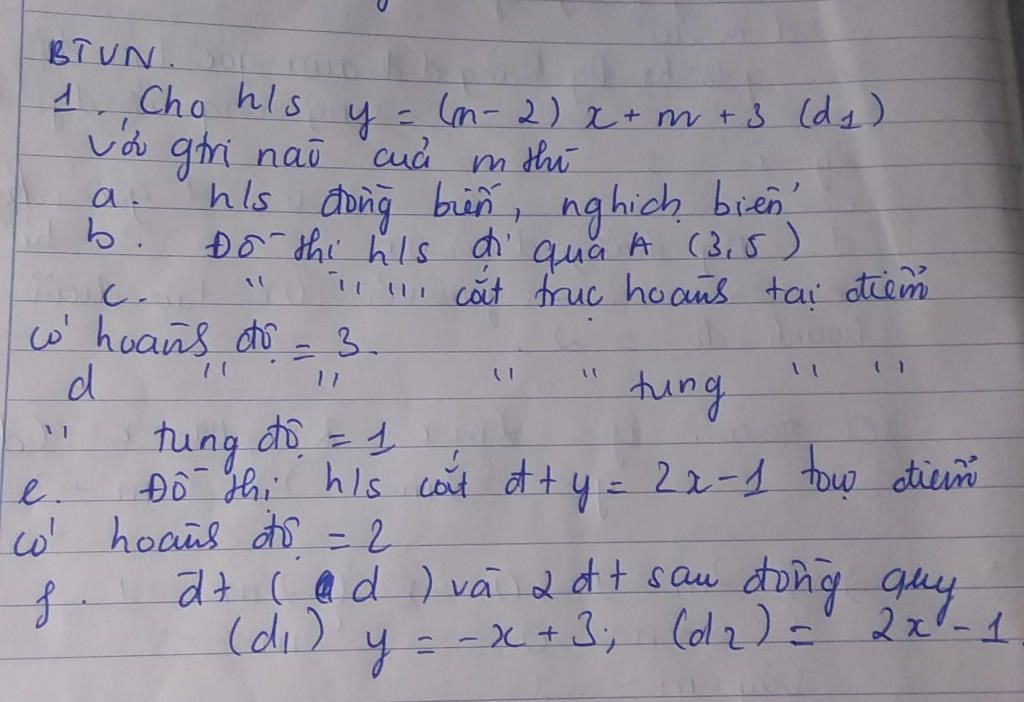 BTVN.
1. Cho h/s y = (m-2) x + m + 3 (d1)
Với gtri nào của m thì
a. h/s đồng biến, nghịch biến
b. Đồ thị h/s đi qua A (3,5)
c. " " " cắt trục hoành tại điểm
có hoành độ = 3.
d " " " " tung " "
" tung độ = 1
e. Đồ thị h/s cắt đt y = 2x-1 tại điểm
có hoành độ = 2
f. đt (d) và 2 đt sau đồng quy
(d1) y = -x + 3; (d2) = 2x - 1